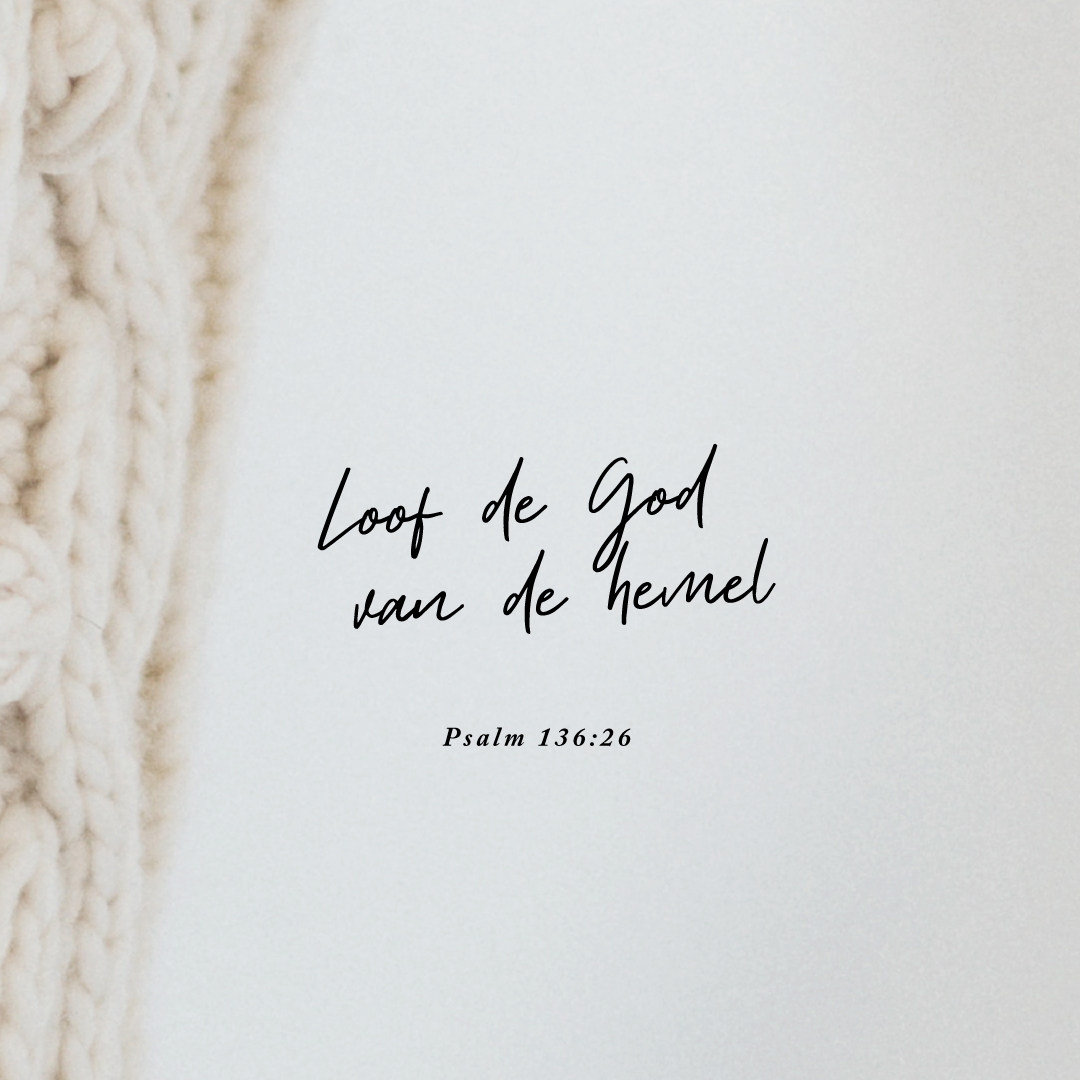 Loof de God
van de hemel
Psalm 136:26